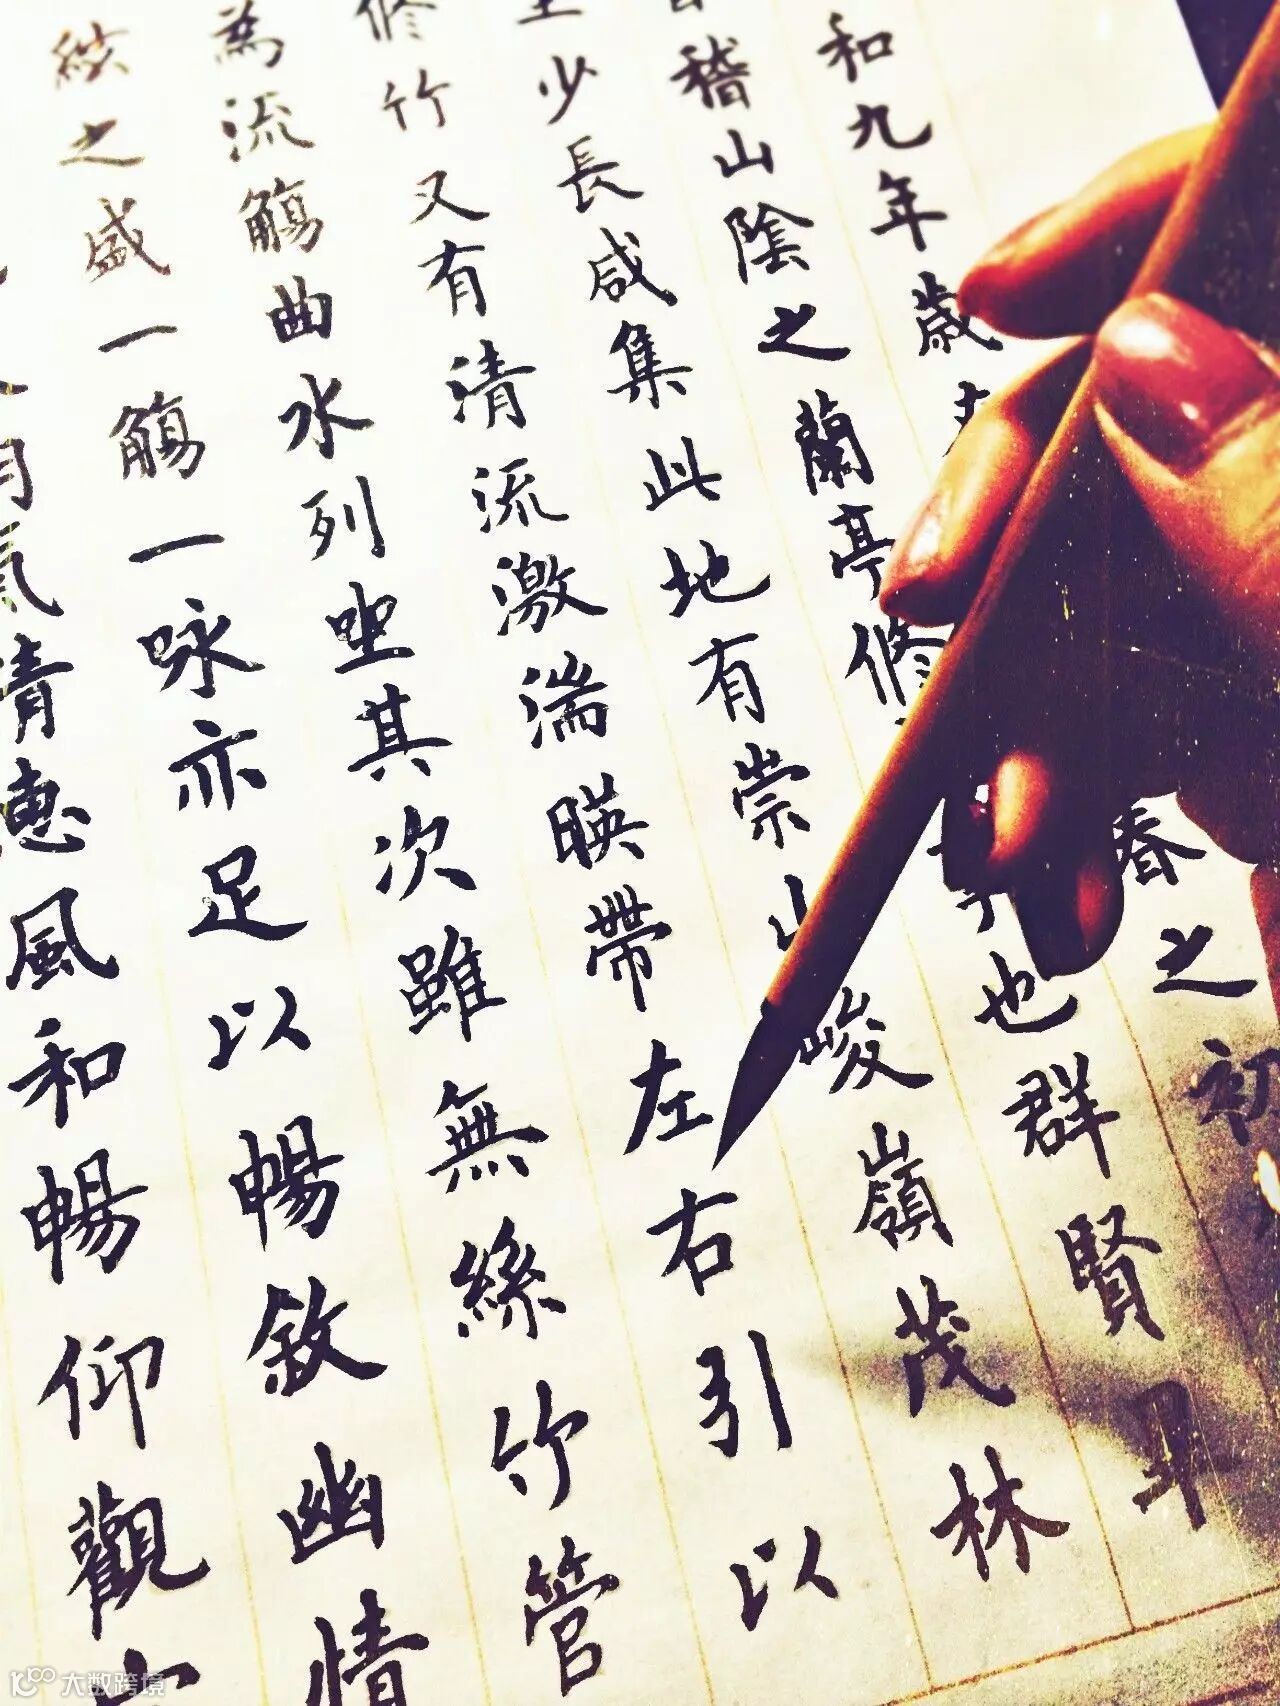 和九年歲春之初
稽山陰之蘭亭修也群賢畢
至少長咸集此地有崇山峻嶺茂林
修竹又有清流激湍暎帶左右引以
為流觴曲水列坐其次雖無絲竹管
絃之盛一觴一咏亦足以暢敘幽情
朗氣清惠風和暢仰觀宇
大数跨境